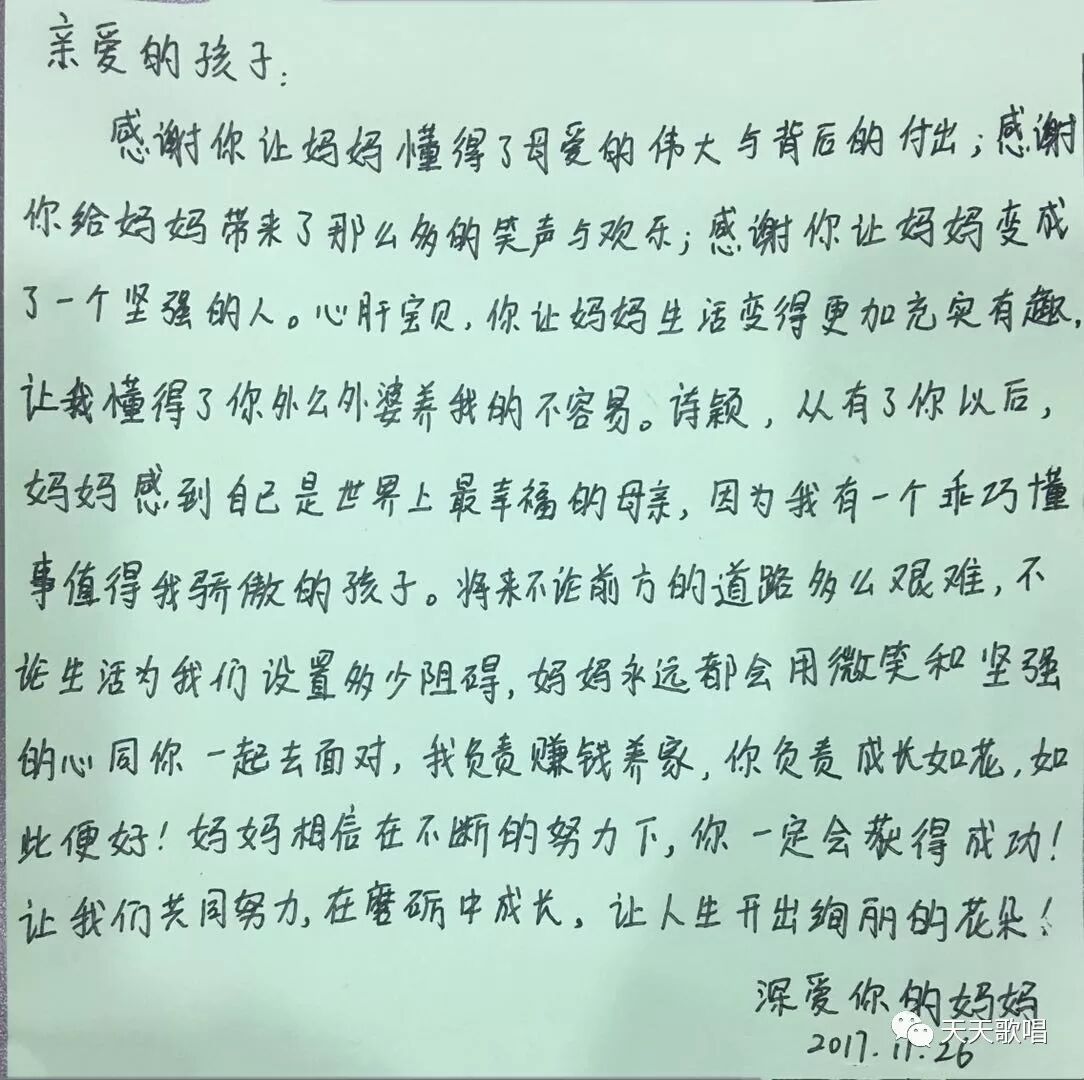 亲爱的孩子:
感谢你让妈妈懂得了母爱的伟大与背后的付出；感谢
你给妈妈带来了那么多的笑声与欢乐；感谢你让妈妈变成
了一个坚强的人。心肝宝贝，你让妈妈生活变得更加充实有趣，
让我懂得了你外公外婆养我的不容易。诗颖，从有了你以后，
妈妈感到自己是世界上最幸福的母亲，因为我有一个乖巧懂
事值得我骄傲的孩子。将来不论前方的道路多么艰难，不
论生活为我们设置多少阻碍，妈妈永远都会用微笑和坚强
的心同你一起去面对，我负责赚钱养家，你负责成长如花，如
此便好！妈妈相信在不断的努力下，你一定会获得成功！
让我们共同努力，在磨砺中成长，让人生开出绚丽的花朵！
深爱你的妈妈
2017.11.26
天天歌唱